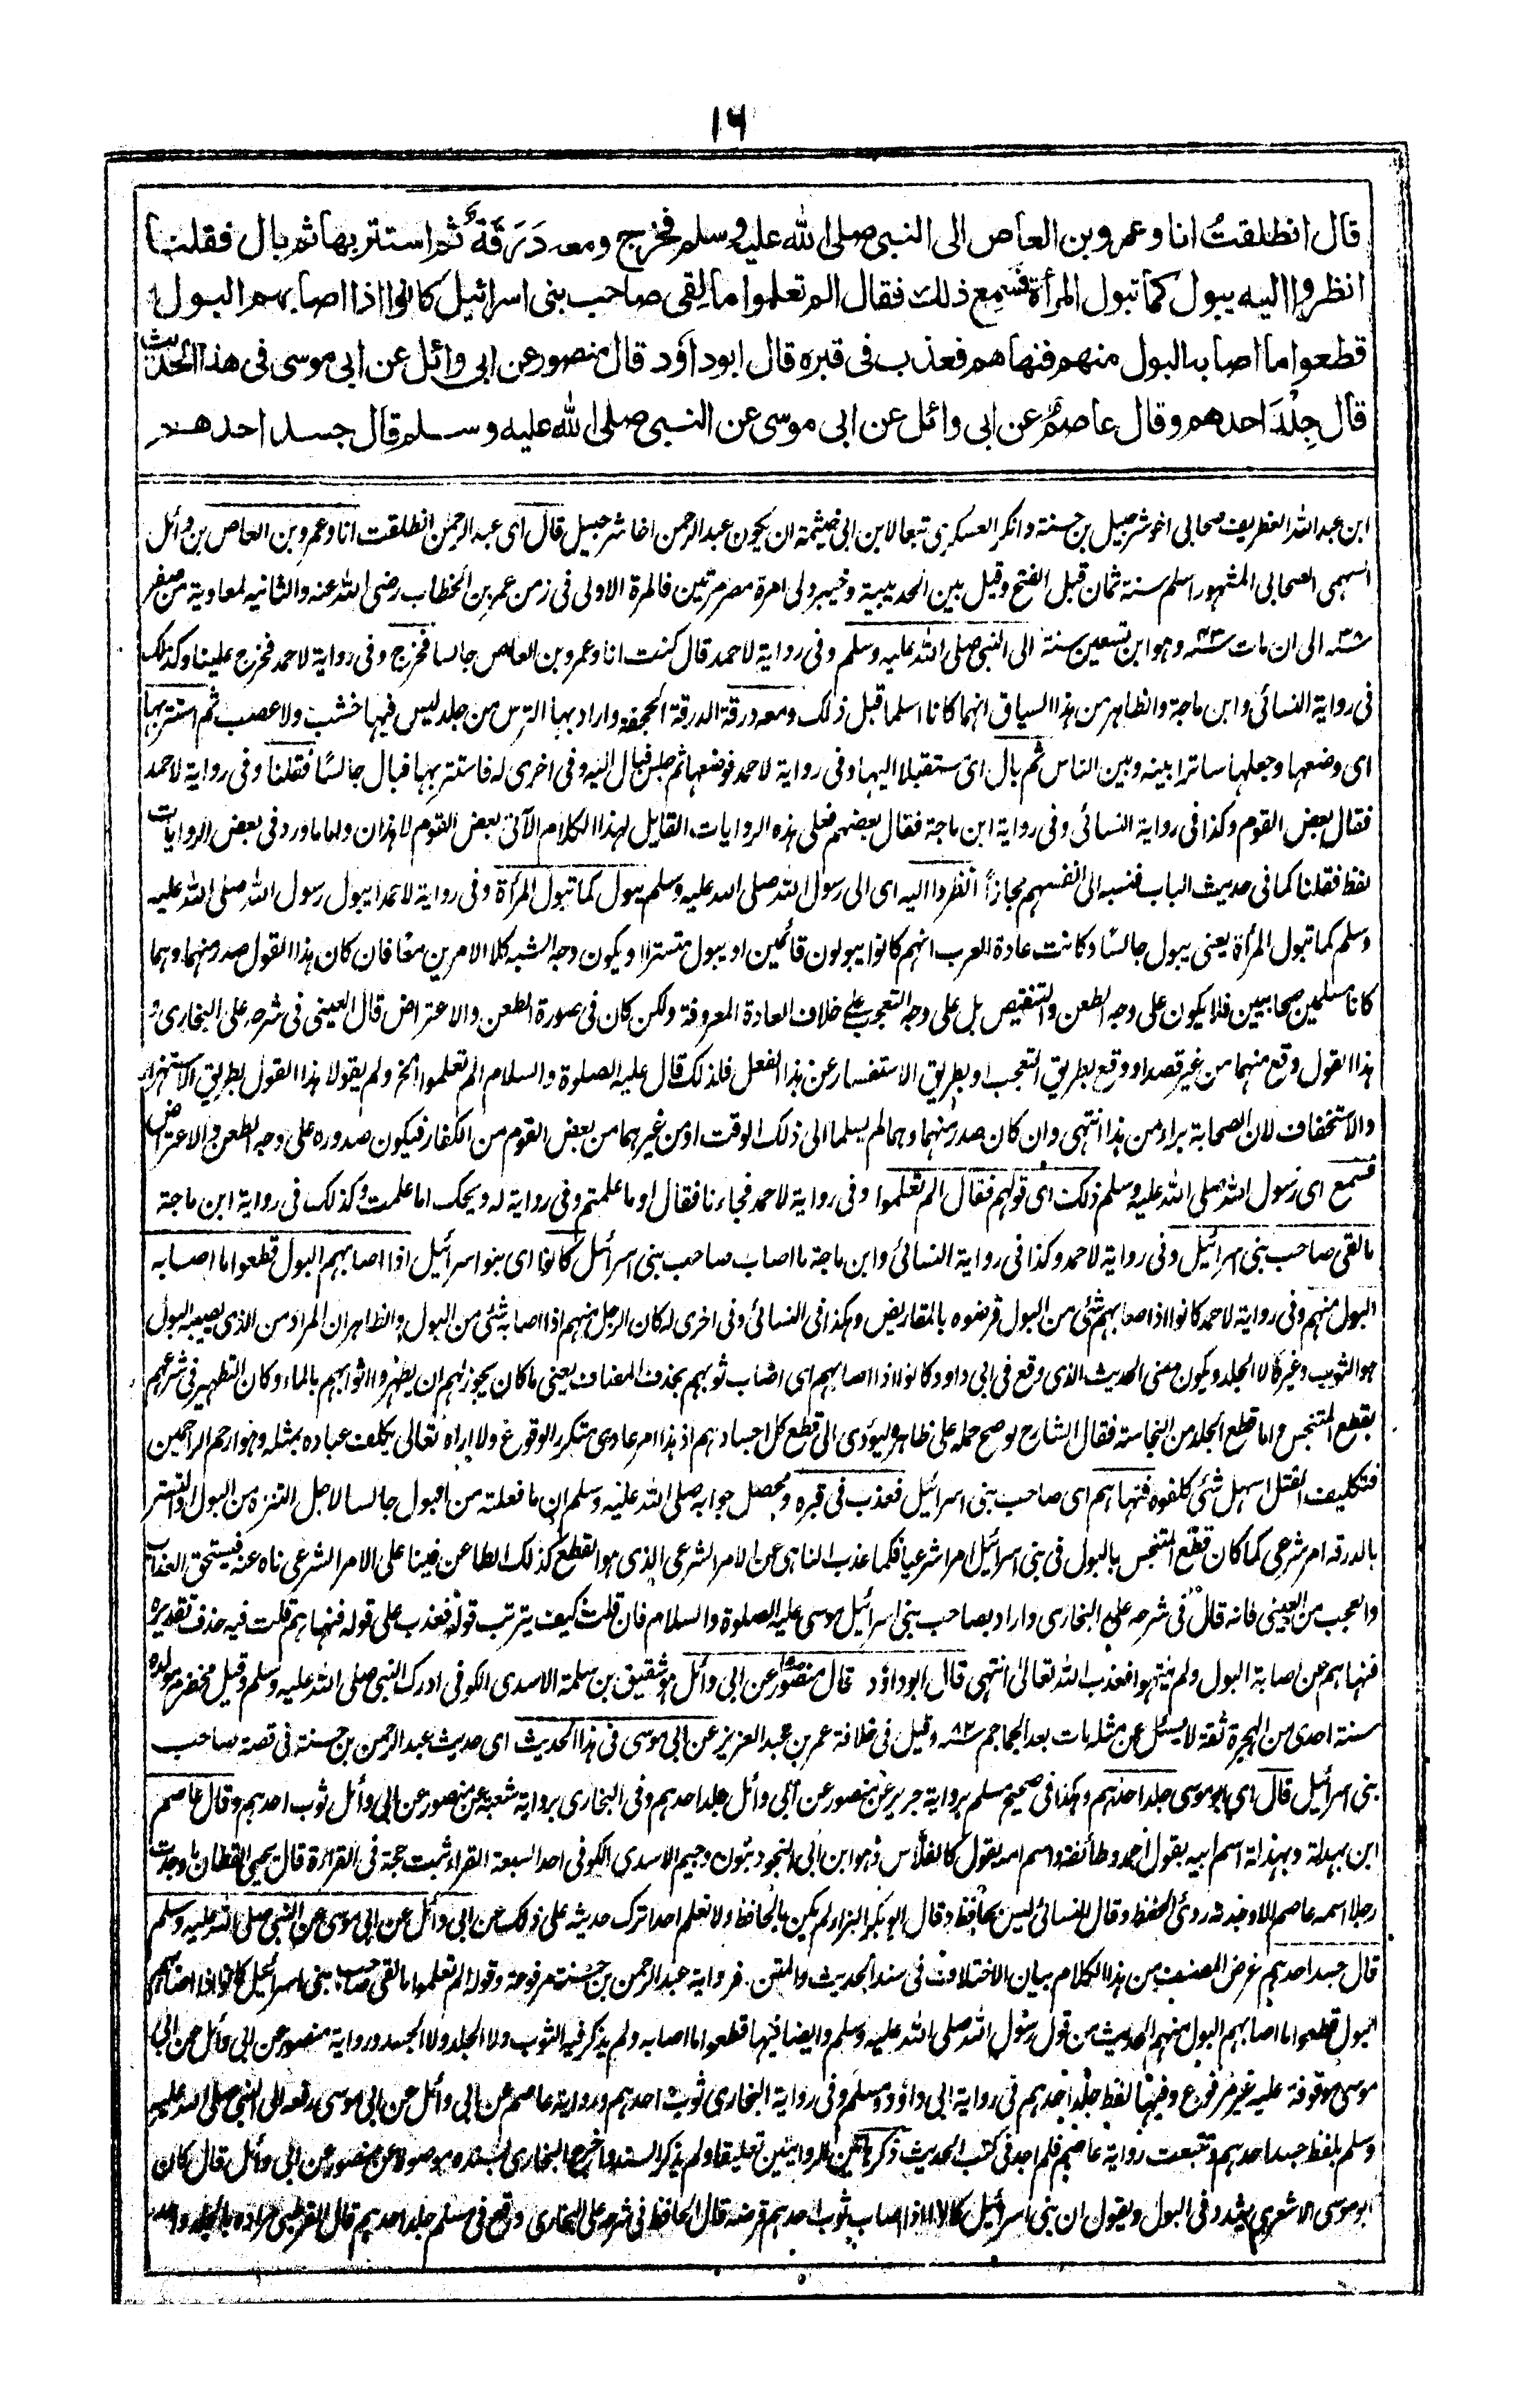 ١٦
قال انطلقتُ انا وعمرو بن العاص الى النبى صلى الله عليه وسلم فخرج ومعه دَرَقَةٌ ثم استتر بها ثم بال فقلنا
انظروا اليه يبول كما تبول المرأة فسمع ذلك فقال الم تعلموا ما لقى صاحب بنى اسرائيل كانوا اذا اصابهم البول
قطعوا ما اصابه البول منهم فنهاهم فعذب فى قبره قال ابو داؤد قال منصور عن ابى وائل عن ابى موسى فى هذا الحديث
قال جِلْدَ احدهم وقال عاصمٌ عن ابى وائل عن ابى موسى عن النبى صلى الله عليه وسلم قال جسد احدهم
ابن عبد الله الغطريف صحابى اخو شرحبيل بن حسنة وانكر العسكرى تبعا لابن ابى خيثمة ان يكون عبد الرحمن اخا شرحبيل قال اى عبد الرحمن انطلقت انا وعمرو بن العاص بن وائل
السهمى الصحابى المشهور اسلم سنة ثمان قبل الفتح وقيل بين الحديبية وخيبر ولى امرة مصر مرتين فالمرة الاولى فى زمن عمر بن الخطاب رضى الله عنه والثانيه لمعاوية من صفر
٣٨سنه الى ان مات ٤٣سنه وهو ابن تسعين سنة الى النبى صلى الله عليه وسلم وفى رواية لاحمد قال كنت انا وعمرو بن العاص جالسا فخرج وفى رواية لاحمد فخرج علينا وكذلك
فى رواية النسائى وابن ماجة والظاهر من هذا السياق انهما كانا اسلما قبل ذلك ومعه درقة الدرقة الحجفة واراد بها الترس من جلد ليس فيها خشب ولا عصب ثم استتر بها
اى وضعها وجعلها ساترا بينه وبين الناس ثم بال اى مستقبلا اليها وفى رواية لاحمد فوضعها ثم جلس فبال اليه وفى اخرى له فاستتر بها فبال جالسًا فقلنا وفى رواية لاحمد
فقال بعض القوم وكذا فى رواية النسائى وفى رواية ابن ماجة فقال بعضهم فعلى هذه الروايات القايل لهذا الكلام الآتى بعض القوم لا هذان واما ما ورد فى بعض الروايات
لفظ فقلنا كما فى حديث الباب فنسبه الى انفسهم مجازاً انظروا اليه اى الى رسول الله صلى الله عليه وسلم يبول كما تبول المرأة وفى رواية لاحمد ايبول رسول الله صلى الله عليه
وسلم كما تبول المرأة يعنى يبول جالسًا وكانت عادة العرب انهم كانوا يبولون قائمين او يبول متسترا ويكون وجه الشبه كلا الامرين معًا فان كان هذا القول صدر منهما وهما
كانا مسلمين صحابيين فلا يكون على وجه الطعن والتنقيص بل على وجه التعجب على خلاف العادة المعروفة ولكن كان فى صورة الطعن والاعتراض قال العينى فى شرحه على البخارى و
هذا القول وقع منهما من غير قصد او وقع بطريق التعجب او بطريق الاستفسار عن هذا الفعل فلذلك قال عليه الصلوة والسلام الم تعلموا الخ ولم يقولا هذا القول بطريق الاستهزاء
والاستخفاف لان الصحابة براء من هذا انتهى وان كان صدر منهما وهما لم يسلما الى ذلك الوقت او من غيرهما من بعض القوم من الكفار فيكون صدوره على وجه الطعن والاعتراض
فسمع اى رسول الله صلى الله عليه وسلم ذلك اى قولهم فقال الم تعلموا وفى رواية لاحمد فجاءنا فقال او ما علمتم وفى رواية له ويحك اما علمت وكذلك فى رواية ابن ماجة
ما لقى صاحب بنى اسرائيل وفى رواية لاحمد وكذا فى رواية النسائى وابن ماجة ما اصاب صاحب بنى اسرائيل كانوا اى بنو اسرائيل اذا اصابهم البول قطعوا ما اصابه
البول منهم وفى رواية لاحمد كانوا اذا اصابهم شئ من البول قرضوه بالمقاريض وهكذا فى النسائى وفى اخرى له كان الرجل منهم اذا اصابه شئ من البول والظاهر ان المراد من الذى يصيبه البول
هو الثوب وغيره لا الجلد ويكون معنى الحديث الذى وقع فى ابى داود كانوا اذا اصابهم اى اصاب ثوبهم بحذف المضاف يعنى ما كان يجوز لهم ان يطهروا اثوابهم بالماء وكان التطهير فى شرعهم
بقطع المتنجس واما قطع الجلد من النجاسة فقال الشارح لو صح حمله على ظاهره ليؤدى الى قطع كل اجسادهم اذ هذا امر عادى متكرر الوقوع ولا اراه تعالى يكلف عباده بمثله وهو ارحم الراحمين
فتكليف القتل اسهل شئ كلفوه فنهاهم اى صاحب بنى اسرائيل فعذب فى قبره ومحصل جوابه صلى الله عليه وسلم ان ما فعلته من البول جالسا لاجل التنزه من البول او التستر
بالدرقه امر شرعى كما كان قطع المتنجس بالبول فى بنى اسرائيل امرا شرعيا فكما عذب الناهى عن الامر الشرعى الذى هو القطع كذلك الطاعن فينا على الامر الشرعى ناه عنه فيستحق العذاب
والعجب من العينى فانه قال فى شرحه على البخارى واراد بصاحب بنى اسرائيل موسى عليه الصلوة والسلام فان قلت كيف يترتب قوله فعذب على قوله فنهاهم قلت فيه حذف تقديره
فنهاهم عن اصابة البول ولم ينتهوا فعذب الله تعالى انتهى قال ابو داؤد قال منصور عن ابى وائل هو شقيق بن سلمة الاسدى الكوفى ادرك النبى صلى الله عليه وسلم وقيل مخضرم مولده
سنة احدى من الهجرة ثقة لا يسئل عن مثله مات بعد الجماجم ٨٢سنه وقيل فى خلافة عمر بن عبد العزيز عن ابى موسى فى هذا الحديث اى حديث عبد الرحمن بن حسنة فى قصة صاحب
بنى اسرائيل قال اى ابو موسى جلد احدهم وهكذا فى صحيح مسلم برواية جرير عن منصور عن ابى وائل جلد احدهم وفى البخارى برواية شعبة عن منصور عن ابى وائل ثوب احدهم وقال عاصم
ابن بهدلة وبهدلة اسم ابيه بقول احمد وطائفة واسم امه بقول كالفلاس وهو ابن ابى النجود بنون وجيم الاسدى الكوفى احد السبعة القراء ثبت حجة فى القراءة قال يحيى القطان ما وجدت
رجلا اسمه عاصم الا وجدته ردئ الحفظ وقال النسائى ليس بحافظ وقال ابو بكر البزار لم يكن بالحافظ ولا نعلم احدا ترك حديثه على ذلك عن ابى وائل عن ابى موسى عن النبى صلى الله عليه وسلم
قال جسد احدهم غرض المصنف من هذا الكلام بيان الاختلاف فى سند الحديث والمتن. فرواية عبد الرحمن بن حسنة مرفوعة وقوله الم تعلموا ما لقى صاحب بنى اسرائيل كانوا اذا اصابهم
البول قطعوا ما اصابهم البول منهم الحديث من قول رسول الله صلى الله عليه وسلم وايضا فيها قطعوا ما اصابه ولم يذكر فيه الثوب ولا الجلد ولا الجسد ورواية منصور عن ابى وائل عن ابى
موسى موقوفة عليه غير مرفوع وفيها لفظ جلد احدهم فى رواية ابى داؤد ومسلم وفى رواية البخارى ثوب احدهم ورواية عاصم عن ابى وائل عن ابى موسى رفعه الى النبى صلى الله عليه
وسلم بلفظ جسد احدهم وتتبعت رواية عاصم فلم اجد فى كتب الحديث ذكر هاتين الروايتين تعليقا ولم يذكر السند واخرج البخارى بسنده موصولا عن منصور عن ابى وائل قال كان
ابو موسى الاشعرى يشدد فى البول ويقول ان بنى اسرائيل كان اذا اصاب ثوب احدهم قرضه قال الحافظ فى شرحه على البخارى وقع فى مسلم جلد احدهم قال القرطبى مراده بالجلد واحد